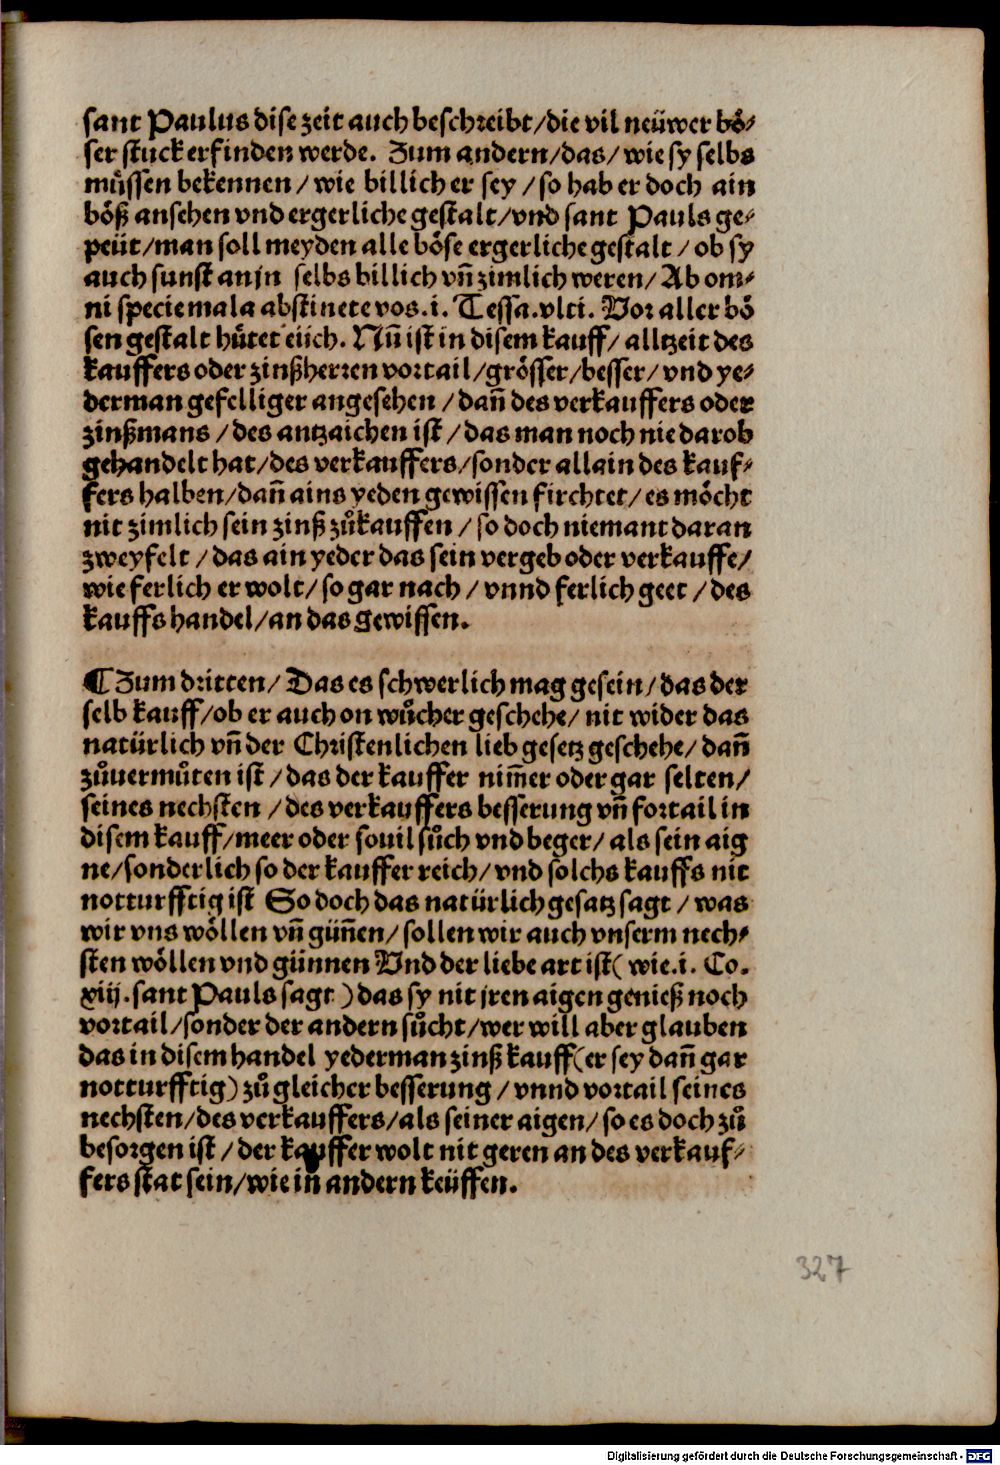 sant Paulus dise zeit auch beschreibt/die vil neüwer boͤ⸗
ser stuck erfinden werde. Zum andern/das/ wie sy selbs
muͤssen bekennen/ wie billich er sey /so hab er doch ain
boͤß ansehen vnd ergerliche gestalt/vnd sant Pauls ge⸗
peüt/man soll meyden alle boͤse ergerliche gestalt / ob sy
auch sunst an jn selbs billich vñ zimlich weren/ Ab om⸗
ni specie mala abstinete vos.i. Tessa.vlti. Vor aller boͤ
sen gestalt huͤtet eüch. Nũ ist in disem kauff/ alltzeit des
kauffers oder zinßherren vortail/groͤsser/besser/ vnd ye⸗
derman gefelliger angesehen /dañ des verkauffers oder
zinßmans /des antzaichen ist /das man noch nie darob
gehandelt hat/des verkauffers/sonder allain des kauf⸗
fers halben/dañ ains yeden gewissen firchtet/es moͤcht
nit zimlich sein zinß zuͦkauffen /so doch niemant daran
zweyfelt /das ain yeder das sein vergeb oder verkauffe/
wie ferlich er wolt/so gar nach / vnnd ferlich geet /des
kauffs handel/an das gewissen.
¶ Zum dritten/ Das es schwerlich mag gesein/das der
selb kauff/ob er auch on wuͦcher geschehe/ nit wider das
natürlich vñ der Christenlichen lieb gesetz geschehe/dañ
zuͦuermuͦten ist /das der kauffer nim̃er oder gar selten/
seines nechsten /des verkauffers besserung vñ fortail in
disem kauff/meer oder souil suͦch vnd beger/als sein aig
ne/sonderlich so der kauffer reich/vnd solchs kauffs nit
notturfftig ist So doch das natürlich gesatz sagt /was
wir vns woͤllen vñ güñen/sollen wir auch vnserm nech⸗
sten woͤllen vnd günnen Vnd der liebe art ist( wie.i. Co.
xiij.sant Pauls sagt )das sy nit jren aigen genieß noch
vortail/sonder der andern suͦcht/wer will aber glauben
das in disem handel yederman zinß kauff(er sey dañ gar
notturfftig)zuͦ gleicher besserung /vnnd vortail seines
nechsten/des verkauffers/als seiner aigen/so es doch zuͦ
besorgen ist /der kauffer wolt nit geren an des verkauf⸗
fers stat sein/wie in andern keüffen.
327
Digitalisierung gefördert durch die Deutsche Forschungsgemeinschaft - DFG